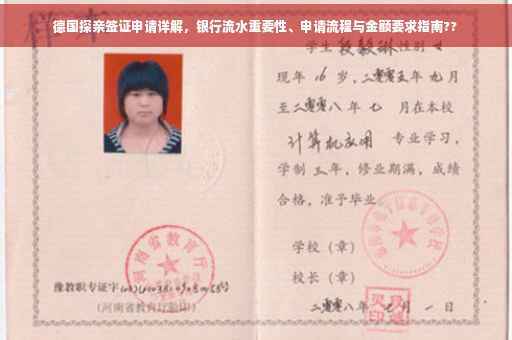 德国探亲签证申请详解，银行流水重要性、申请流程与金额要求指南??
学生段毅琳性别女
现年16岁，二零零五年九月
至二零零八年七月在本校
计算机应用 专业学习，
学制三年，修业期满，成绩
合格，准予毕业
学校（章）
校长（章）
二零零八年七月一日
河南省教育厅
豫教职专证字
（河南省教育厅验印）